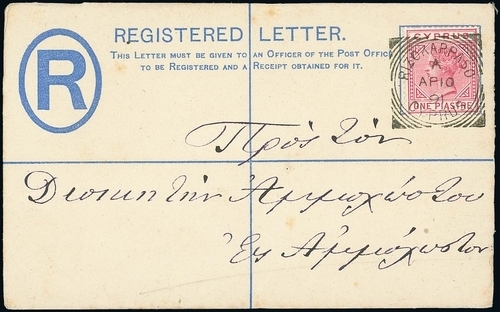 REGISTERED LETTER.
THIS LETTER MUST BE GIVEN TO AN OFFICER OF THE POST OFFICE
TO BE REGISTERED AND A RECEIPT OBTAINED FOR IT.
R
CYPRUS
RIZOKARPASO
A
AP 10
91
CYPRUS
ONE PIASTRE
Πρὸς τὸν
Διοικητὴν Ἀμμοχώστου
Εἰς Ἀμμόχωστον